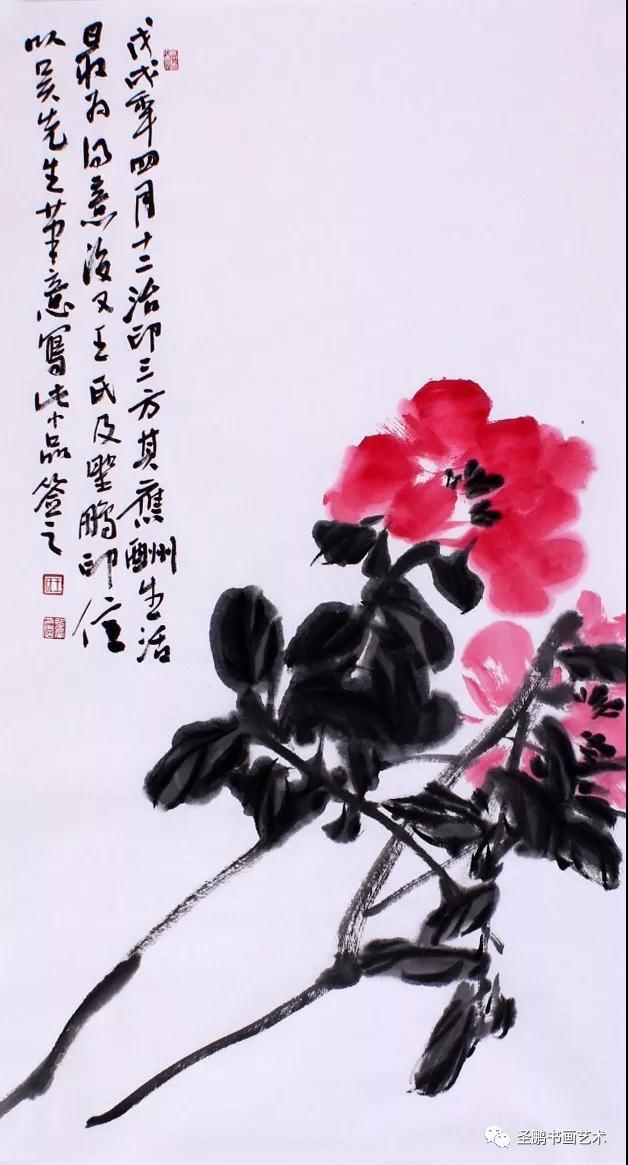 戊戌年四月十二治印三方其应酬生活
最为得意汉又王氏及圣鹏印信
以吴先生笔意写此小品签之
圣鹏书画艺术